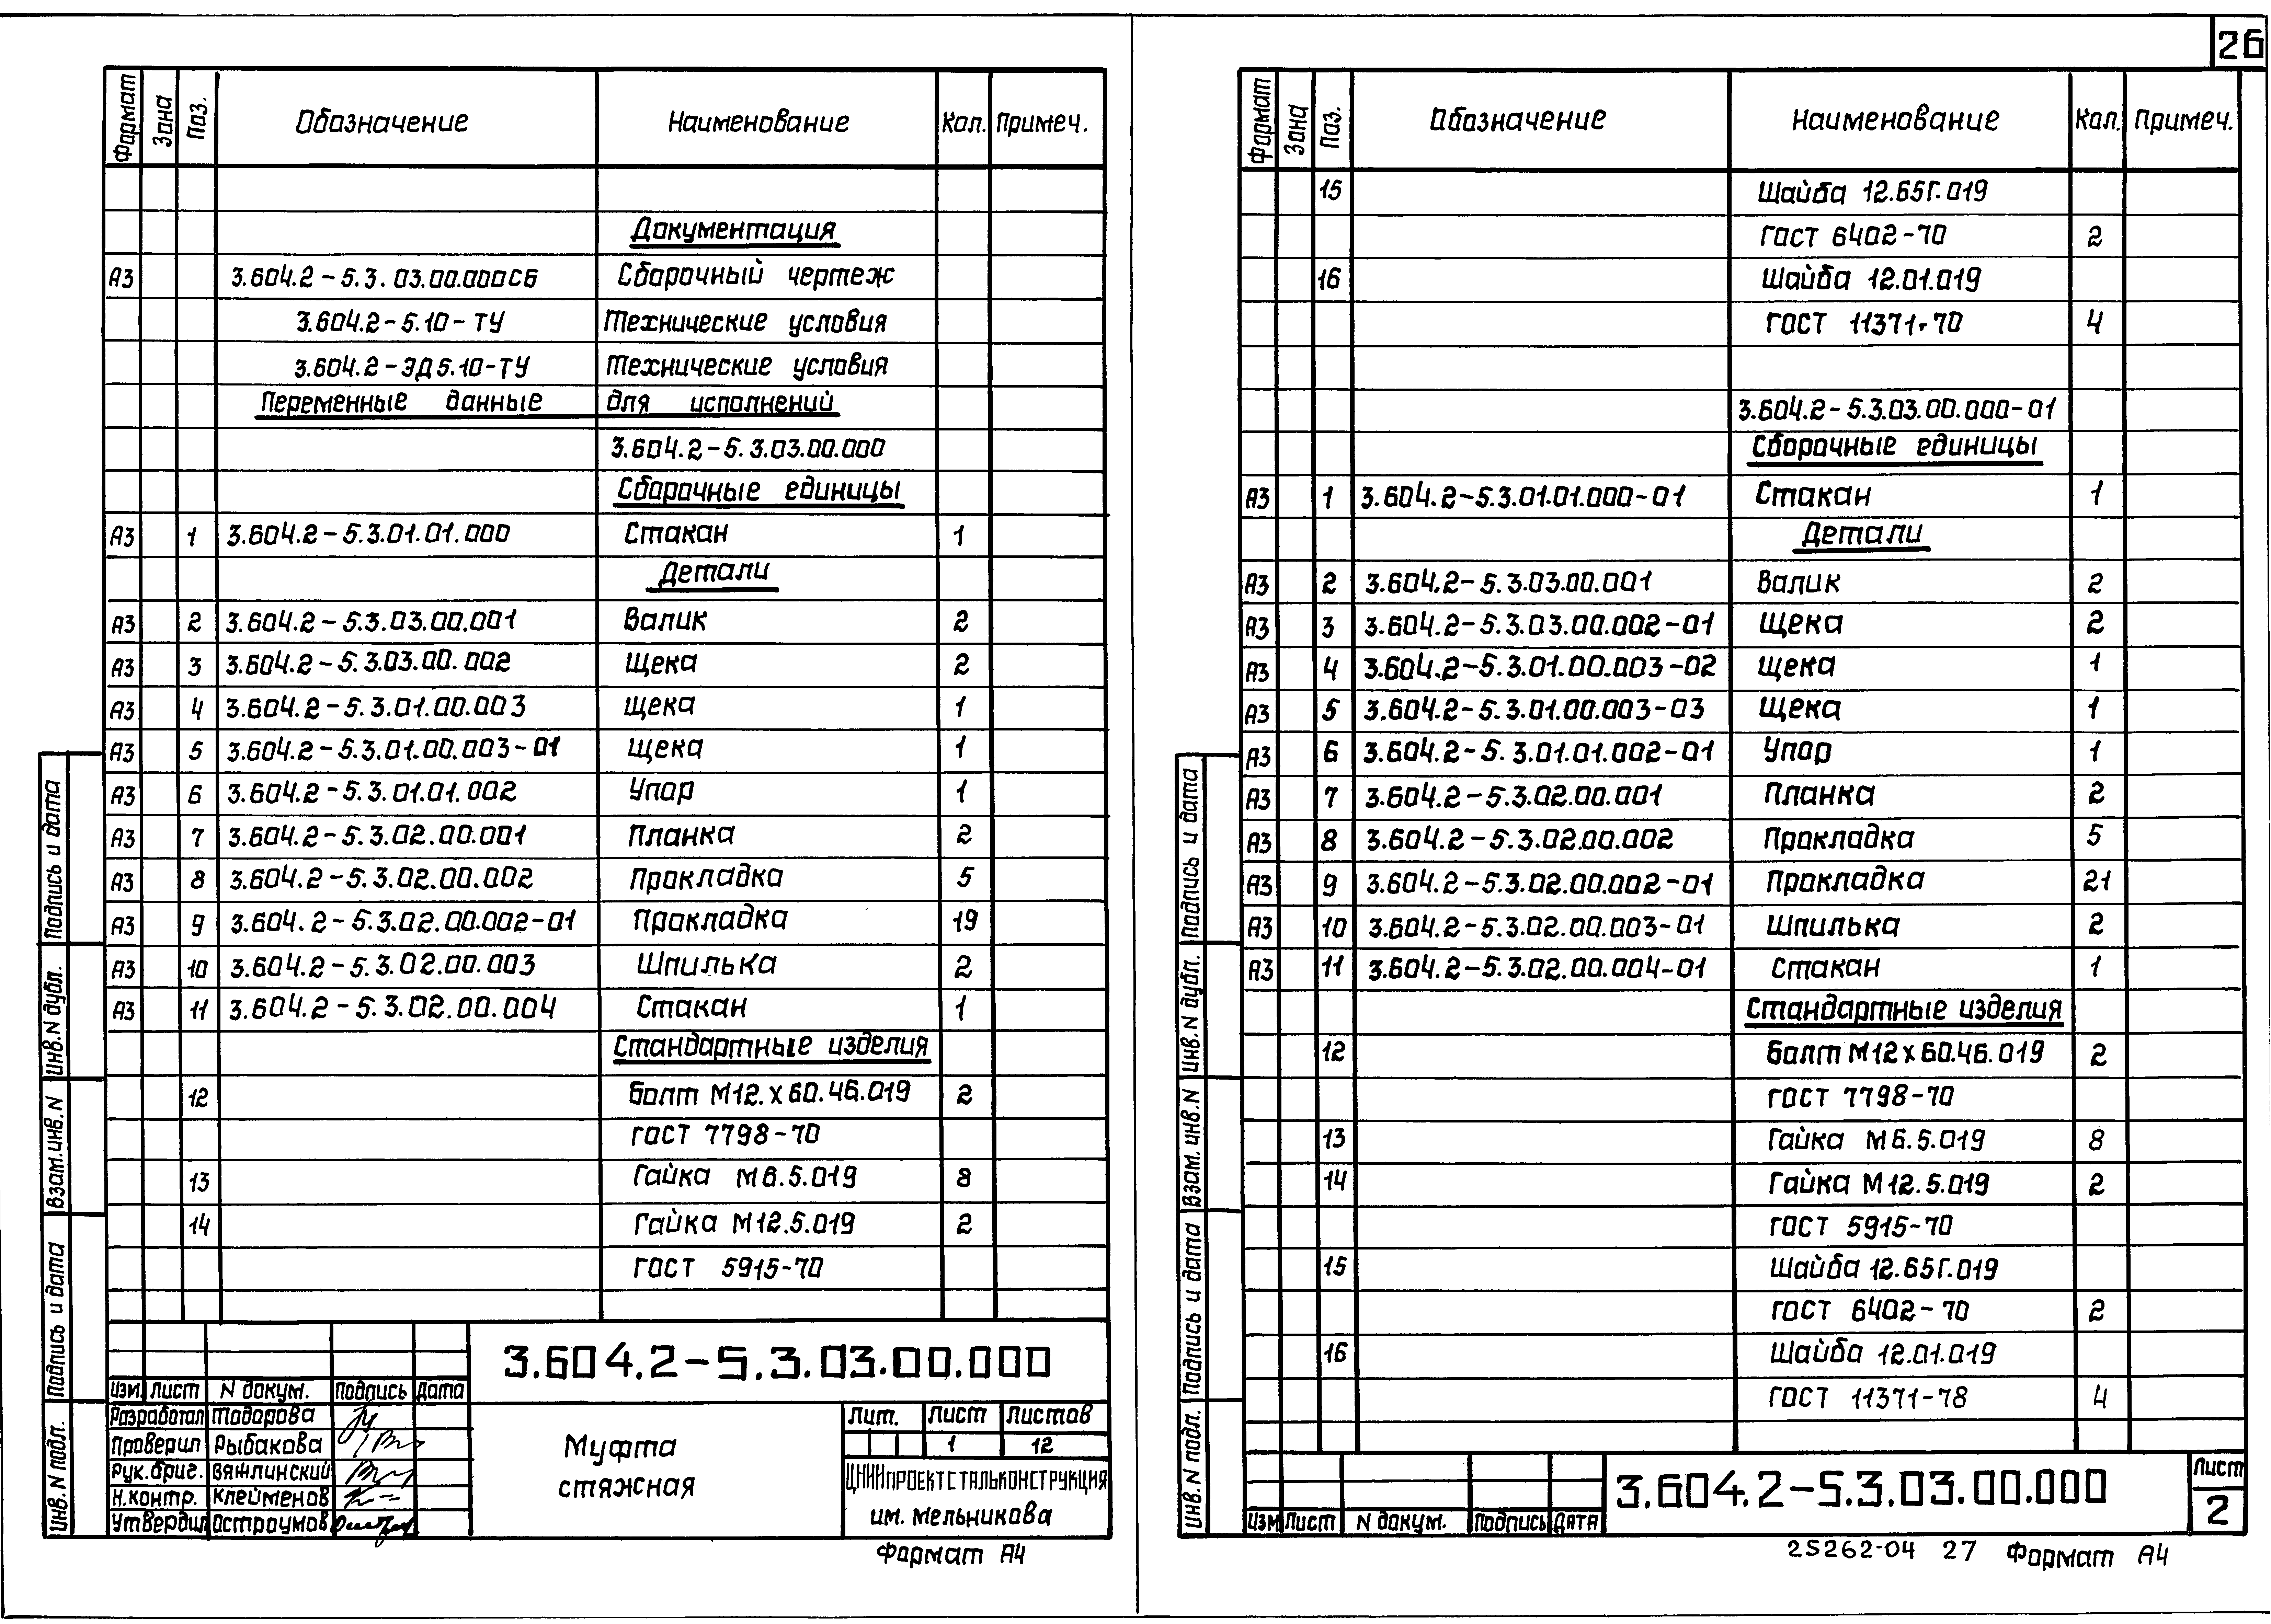 26
Формат Зона Поз. Обозначение Наименование Кол. Примеч.
Документация
А3 3.604.2-5.3.03.00.000СБ Сборочный чертеж
3.604.2-5.10-ТУ Технические условия
3.604.2-ЭД5.10-ТУ Технические условия
Переменные данные для исполнений
3.604.2-5.3.03.00.000
Сборочные единицы
А3 1 3.604.2-5.3.01.01.000 Стакан 1
Детали
А3 2 3.604.2-5.3.03.00.001 Валик 2
А3 3 3.604.2-5.3.03.00.002 Щека 2
А3 4 3.604.2-5.3.01.00.003 Щека 1
А3 5 3.604.2-5.3.01.00.003-01 Щека 1
А3 6 3.604.2-5.3.01.01.002 Упор 1
А3 7 3.604.2-5.3.02.00.001 Планка 2
А3 8 3.604.2-5.3.02.00.002 Прокладка 5
А3 9 3.604.2-5.3.02.00.002-01 Прокладка 19
А3 10 3.604.2-5.3.02.00.003 Шпилька 2
А3 11 3.604.2-5.3.02.00.004 Стакан 1
Стандартные изделия
12 Болт М12.х60.46.019 2
ГОСТ 7798-70
13 Гайка М6.5.019 8
14 Гайка М12.5.019 2
ГОСТ 5915-70
3.604.2-5.3.03.00.000
Изм. Лист N докум. Подпись Дата
Разработал Тодорова
Проверил Рыбакова
Рук.бриг. Вяжлинский
Н.контр. Клейменов
Утвердил Остроумов
Муфта
стяжная
Лит. Лист Листов
1 12
ЦНИИПРОЕКТСТАЛЬКОНСТРУКЦИЯ
им. Мельникова
Формат А4
Подпись и дата
Инв.N дубл.
Взам.инв.N
Подпись и дата
Инв.N подл.
Формат Зона Поз. Обозначение Наименование Кол. Примеч.
15 Шайба 12.65Г.019
ГОСТ 6402-70 2
16 Шайба 12.01.019
ГОСТ 11371-70 4
3.604.2-5.3.03.00.000-01
Сборочные единицы
А3 1 3.604.2-5.3.01.01.000-01 Стакан 1
Детали
А3 2 3.604.2-5.3.03.00.001 Валик 2
А3 3 3.604.2-5.3.03.00.002-01 Щека 2
А3 4 3.604.2-5.3.01.00.003-02 Щека 1
А3 5 3.604.2-5.3.01.00.003-03 Щека 1
А3 6 3.604.2-5.3.01.01.002-01 Упор 1
А3 7 3.604.2-5.3.02.00.001 Планка 2
А3 8 3.604.2-5.3.02.00.002 Прокладка 5
А3 9 3.604.2-5.3.02.00.002-01 Прокладка 21
А3 10 3.604.2-5.3.02.00.003-01 Шпилька 2
А3 11 3.604.2-5.3.02.00.004-01 Стакан 1
Стандартные изделия
12 Болт М12х60.46.019 2
ГОСТ 7798-70
13 Гайка М6.5.019 8
14 Гайка М12.5.019 2
ГОСТ 5915-70
15 Шайба 12.65Г.019
ГОСТ 6402-70 2
16 Шайба 12.01.019
ГОСТ 11371-78 4
3.604.2-5.3.03.00.000
Лист
2
Изм Лист N докум. Подпись Дата
25262-04 27 Формат А4
Подпись и дата
Инв.N дубл.
Взам. инв.N
Подпись и дата
Инв.N подл.